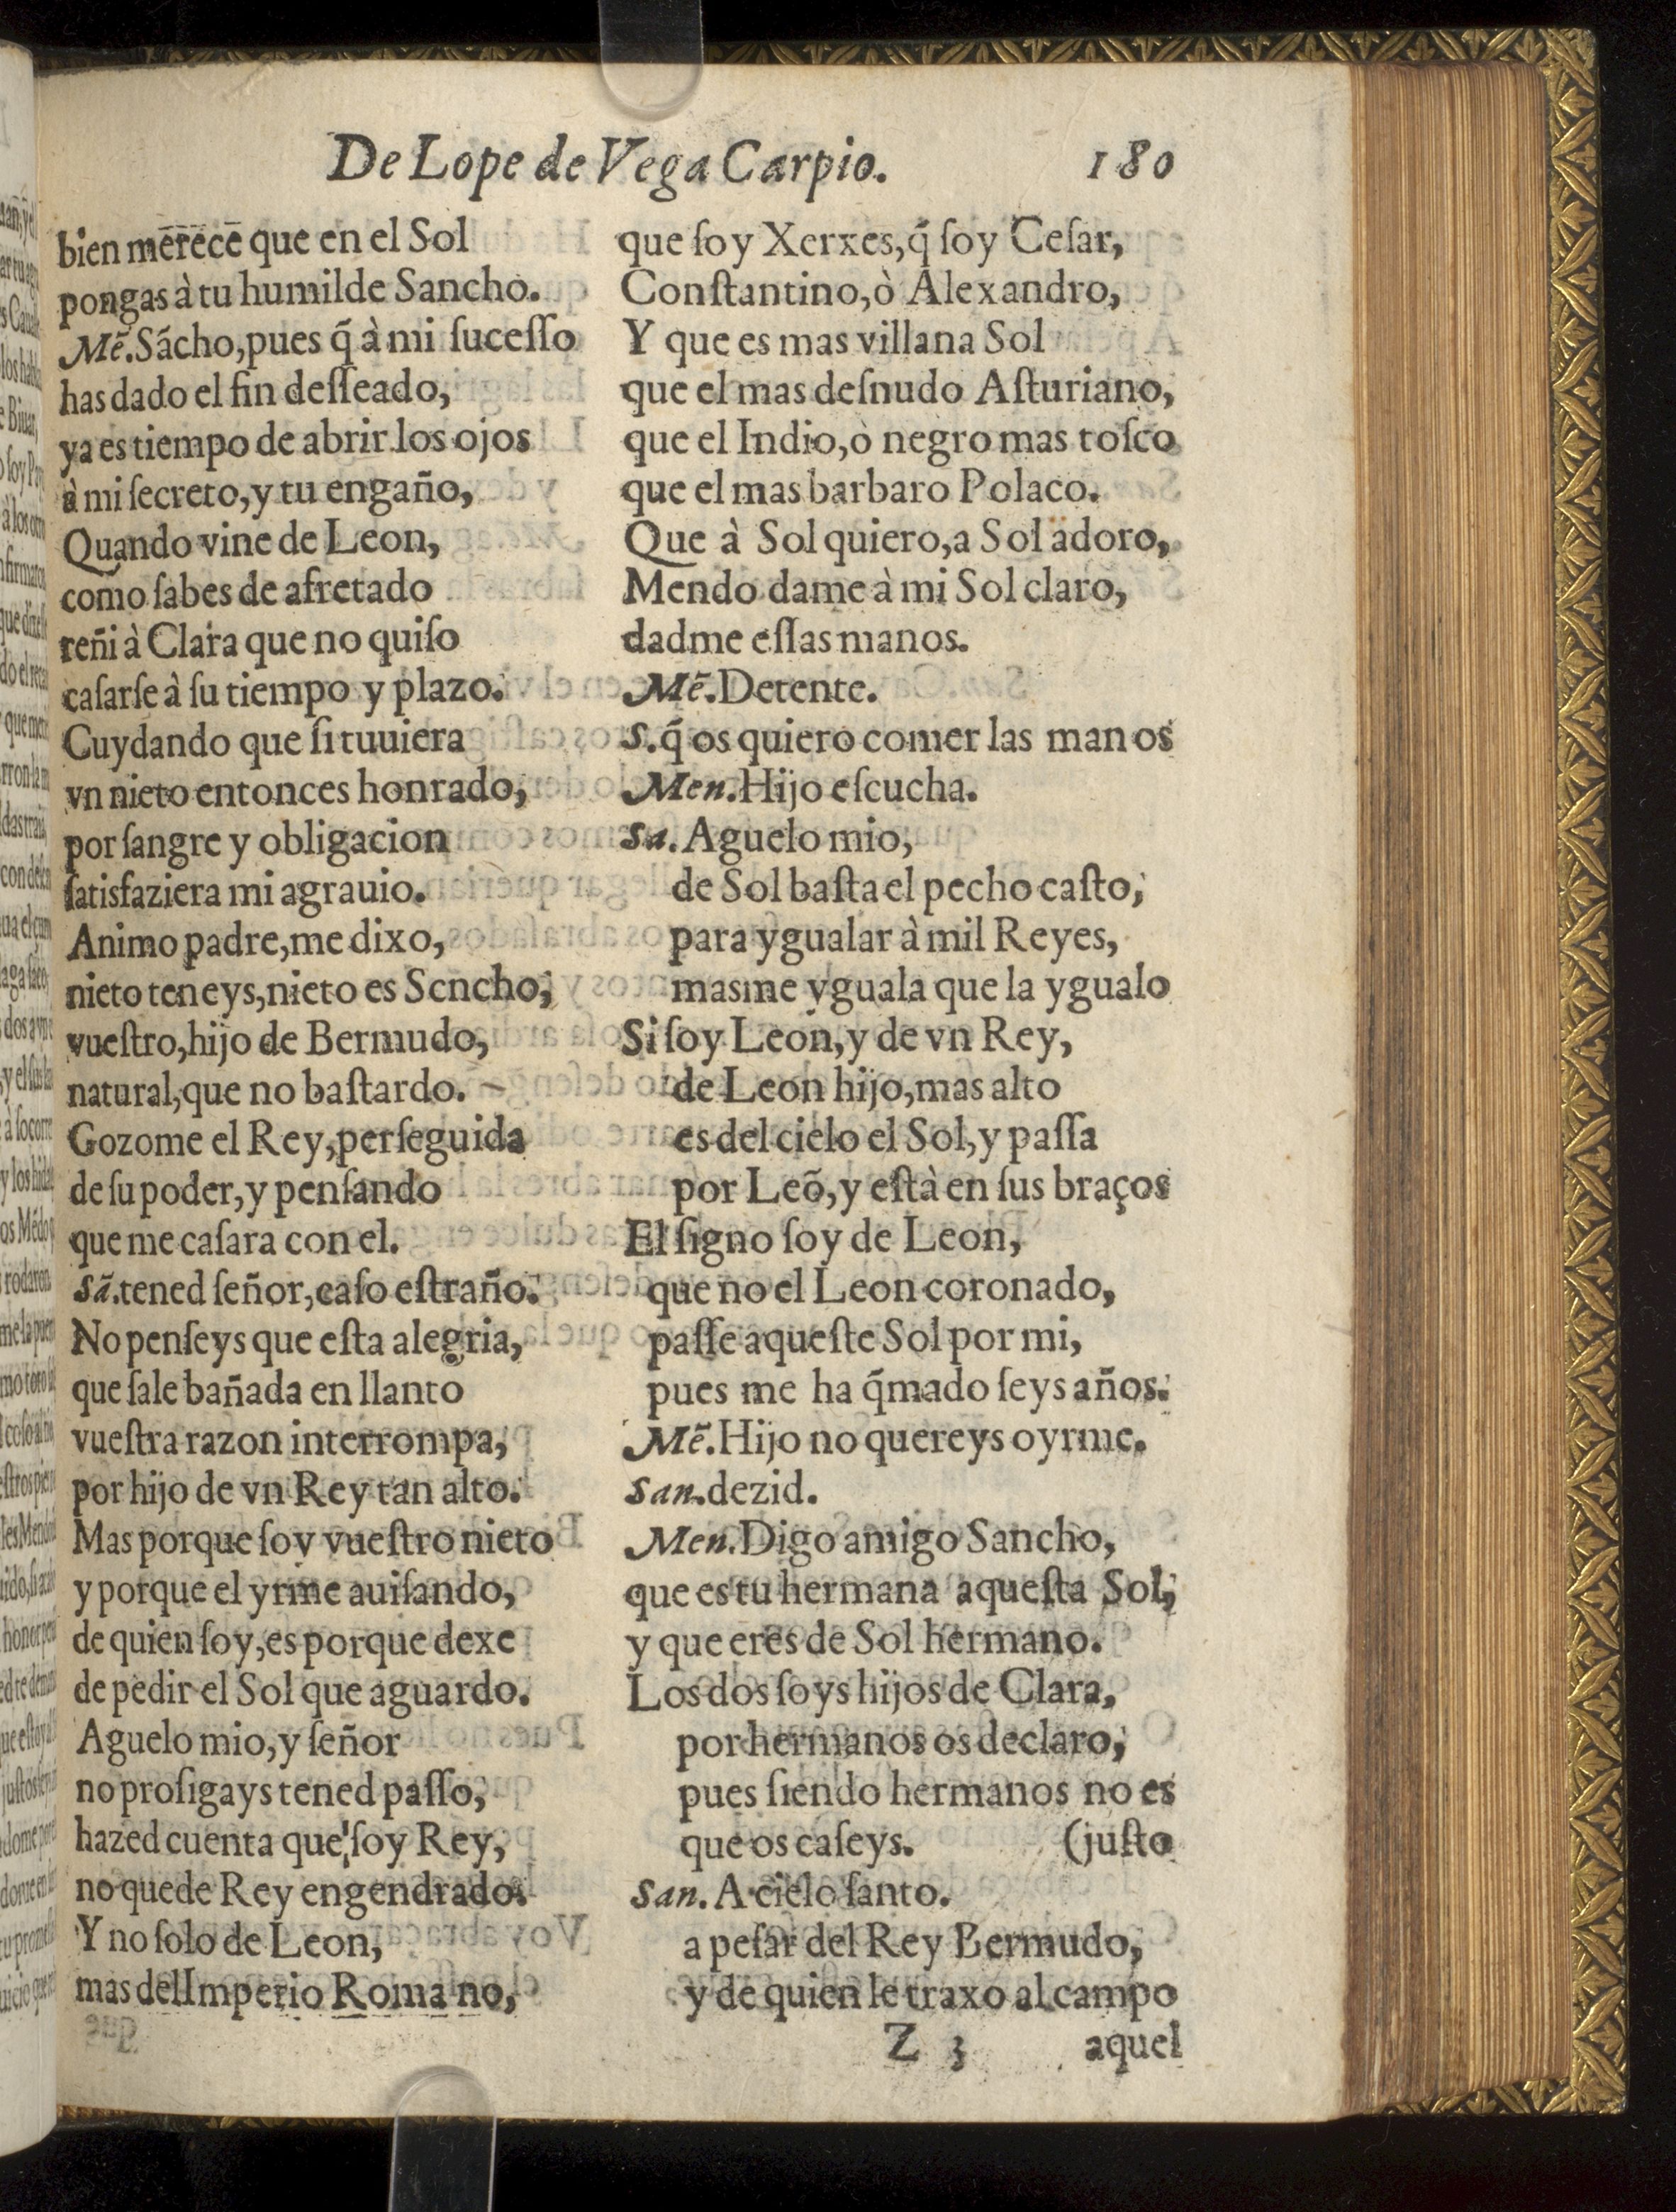 De Lope de Vega Carpio. 180
bien merece que en el Sol
pongas à tu humilde Sancho.
Mẽ. Sãcho, pues q̃ à mi ſuceſſo
has dado el fin deſſeado,
ya es tiempo de abrir los ojos
à mi ſecreto, y tu engaño,
Quando vine de Leon,
como ſabes de afretado
reñi à Clara que no quiſo
caſarſe à ſu tiempo y plazo.
Cuydando que ſi tuuiera
vn nieto entonces honrado,
por ſangre y obligacion
ſatisfaziera mi agrauio.
Animo padre, me dixo,
nieto teneys, nieto es Scncho,
vueſtro, hijo de Bermudo,
natural, que no baſtardo.
Gozome el Rey, perſeguida
de ſu poder, y penſando
que me caſara con el.
Sã. tened ſeñor, caſo eſtraño.
No penſeys que eſta alegria,
que ſale bañada en llanto
vueſtra razon interrompa,
por hijo de vn Rey tan alto.
Mas porque ſoy vueſtro nieto
y porque el yrme auiſando,
de quien ſoy, es porque dexe
de pedir el Sol que aguardo.
Aguelo mio, y ſeñor
no proſigays tened paſſo,
hazed cuenta que ſoy Rey,
no quede Rey engendrado.
Y no ſolo de Leon,
mas del Imperio Romano,
que ſoy Xerxes, q̃ ſoy Ceſar,
Conſtantino, ò Alexandro,
Y que es mas villana Sol
que el mas deſnudo Aſturiano,
que el Indio, ò negro mas toſco
que el mas barbaro Polaco.
Que à Sol quiero, a Sol adoro,
Mendo dame à mi Sol claro,
dadme eſſas manos.
Mẽ. Detente.
S. q̃ os quiero comer las manos
Men. Hijo eſcucha.
Sa. Aguelo mio,
de Sol baſta el pecho caſto,
para ygualar à mil Reyes,
mas me yguala que la ygualo
Si ſoy Leon, y de vn Rey,
de Leon hijo, mas alto
es del cielo el Sol, y paſſa
por Leõ, y eſtà en ſus braços
El ſigno ſoy de Leon,
que no el Leon coronado,
paſſe aqueſte Sol por mi,
pues me ha q̃mado ſeys años.
Mẽ. Hijo no quereys oyrme.
San. dezid.
Men. Digo amigo Sancho,
que es tu hermana aqueſta Sol,
y que eres de Sol hermano.
Los dos ſoys hijos de Clara,
por hermanos os declaro,
pues ſiendo hermanos no es
que os caſeys. (juſto
San. A cielo ſanto.
a peſar del Rey Bermudo,
y de quien le traxo al campo
Z 3 aquel